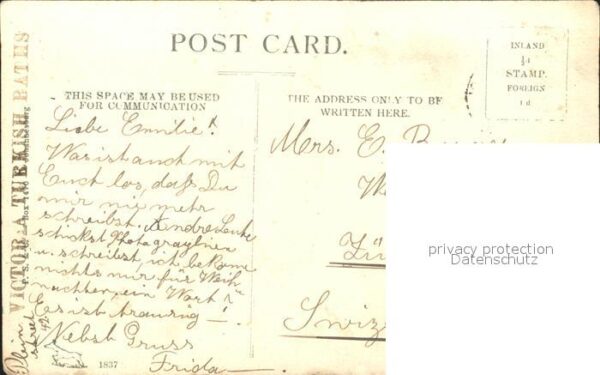 POST CARD.
THIS SPACE MAY BE USED
FOR COMMUNICATION
THE ADDRESS ONLY TO BE
WRITTEN HERE.
INLAND
½d
STAMP.
FOREIGN
1d
VICTORIA TURKISH BATHS
Liebe Emilie!
Was ist auch mit
Euch los, daß Du
mir nie mehr
schreibst. Andre Leute
schickst Photographien
u. schreibst, ich bekomme
nichts mir für Weih
nachten, ein Wort?
Es ist traurig —!
Nebst Gruss
Frida
1837
Mrs. E.
Zü
Swiz
privacy protection
Datenschutz